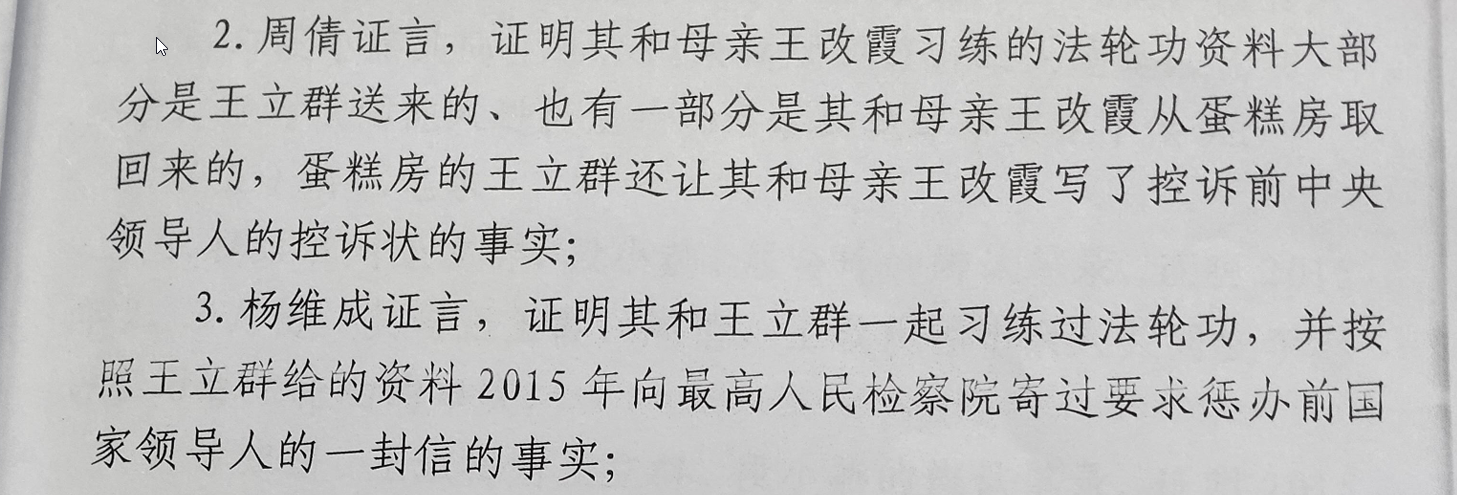 2. 周倩证言，证明其和母亲王改霞习练的法轮功资料大部
分是王立群送来的、也有一部分是其和母亲王改霞从蛋糕房取
回来的，蛋糕房的王立群还让其和母亲王改霞写了控诉前中央
领导人的控诉状的事实；
3. 杨维成证言，证明其和王立群一起习练过法轮功，并按
照王立群给的资料 2015 年向最高人民检察院寄过要求惩办前国
家领导人的一封信的事实；